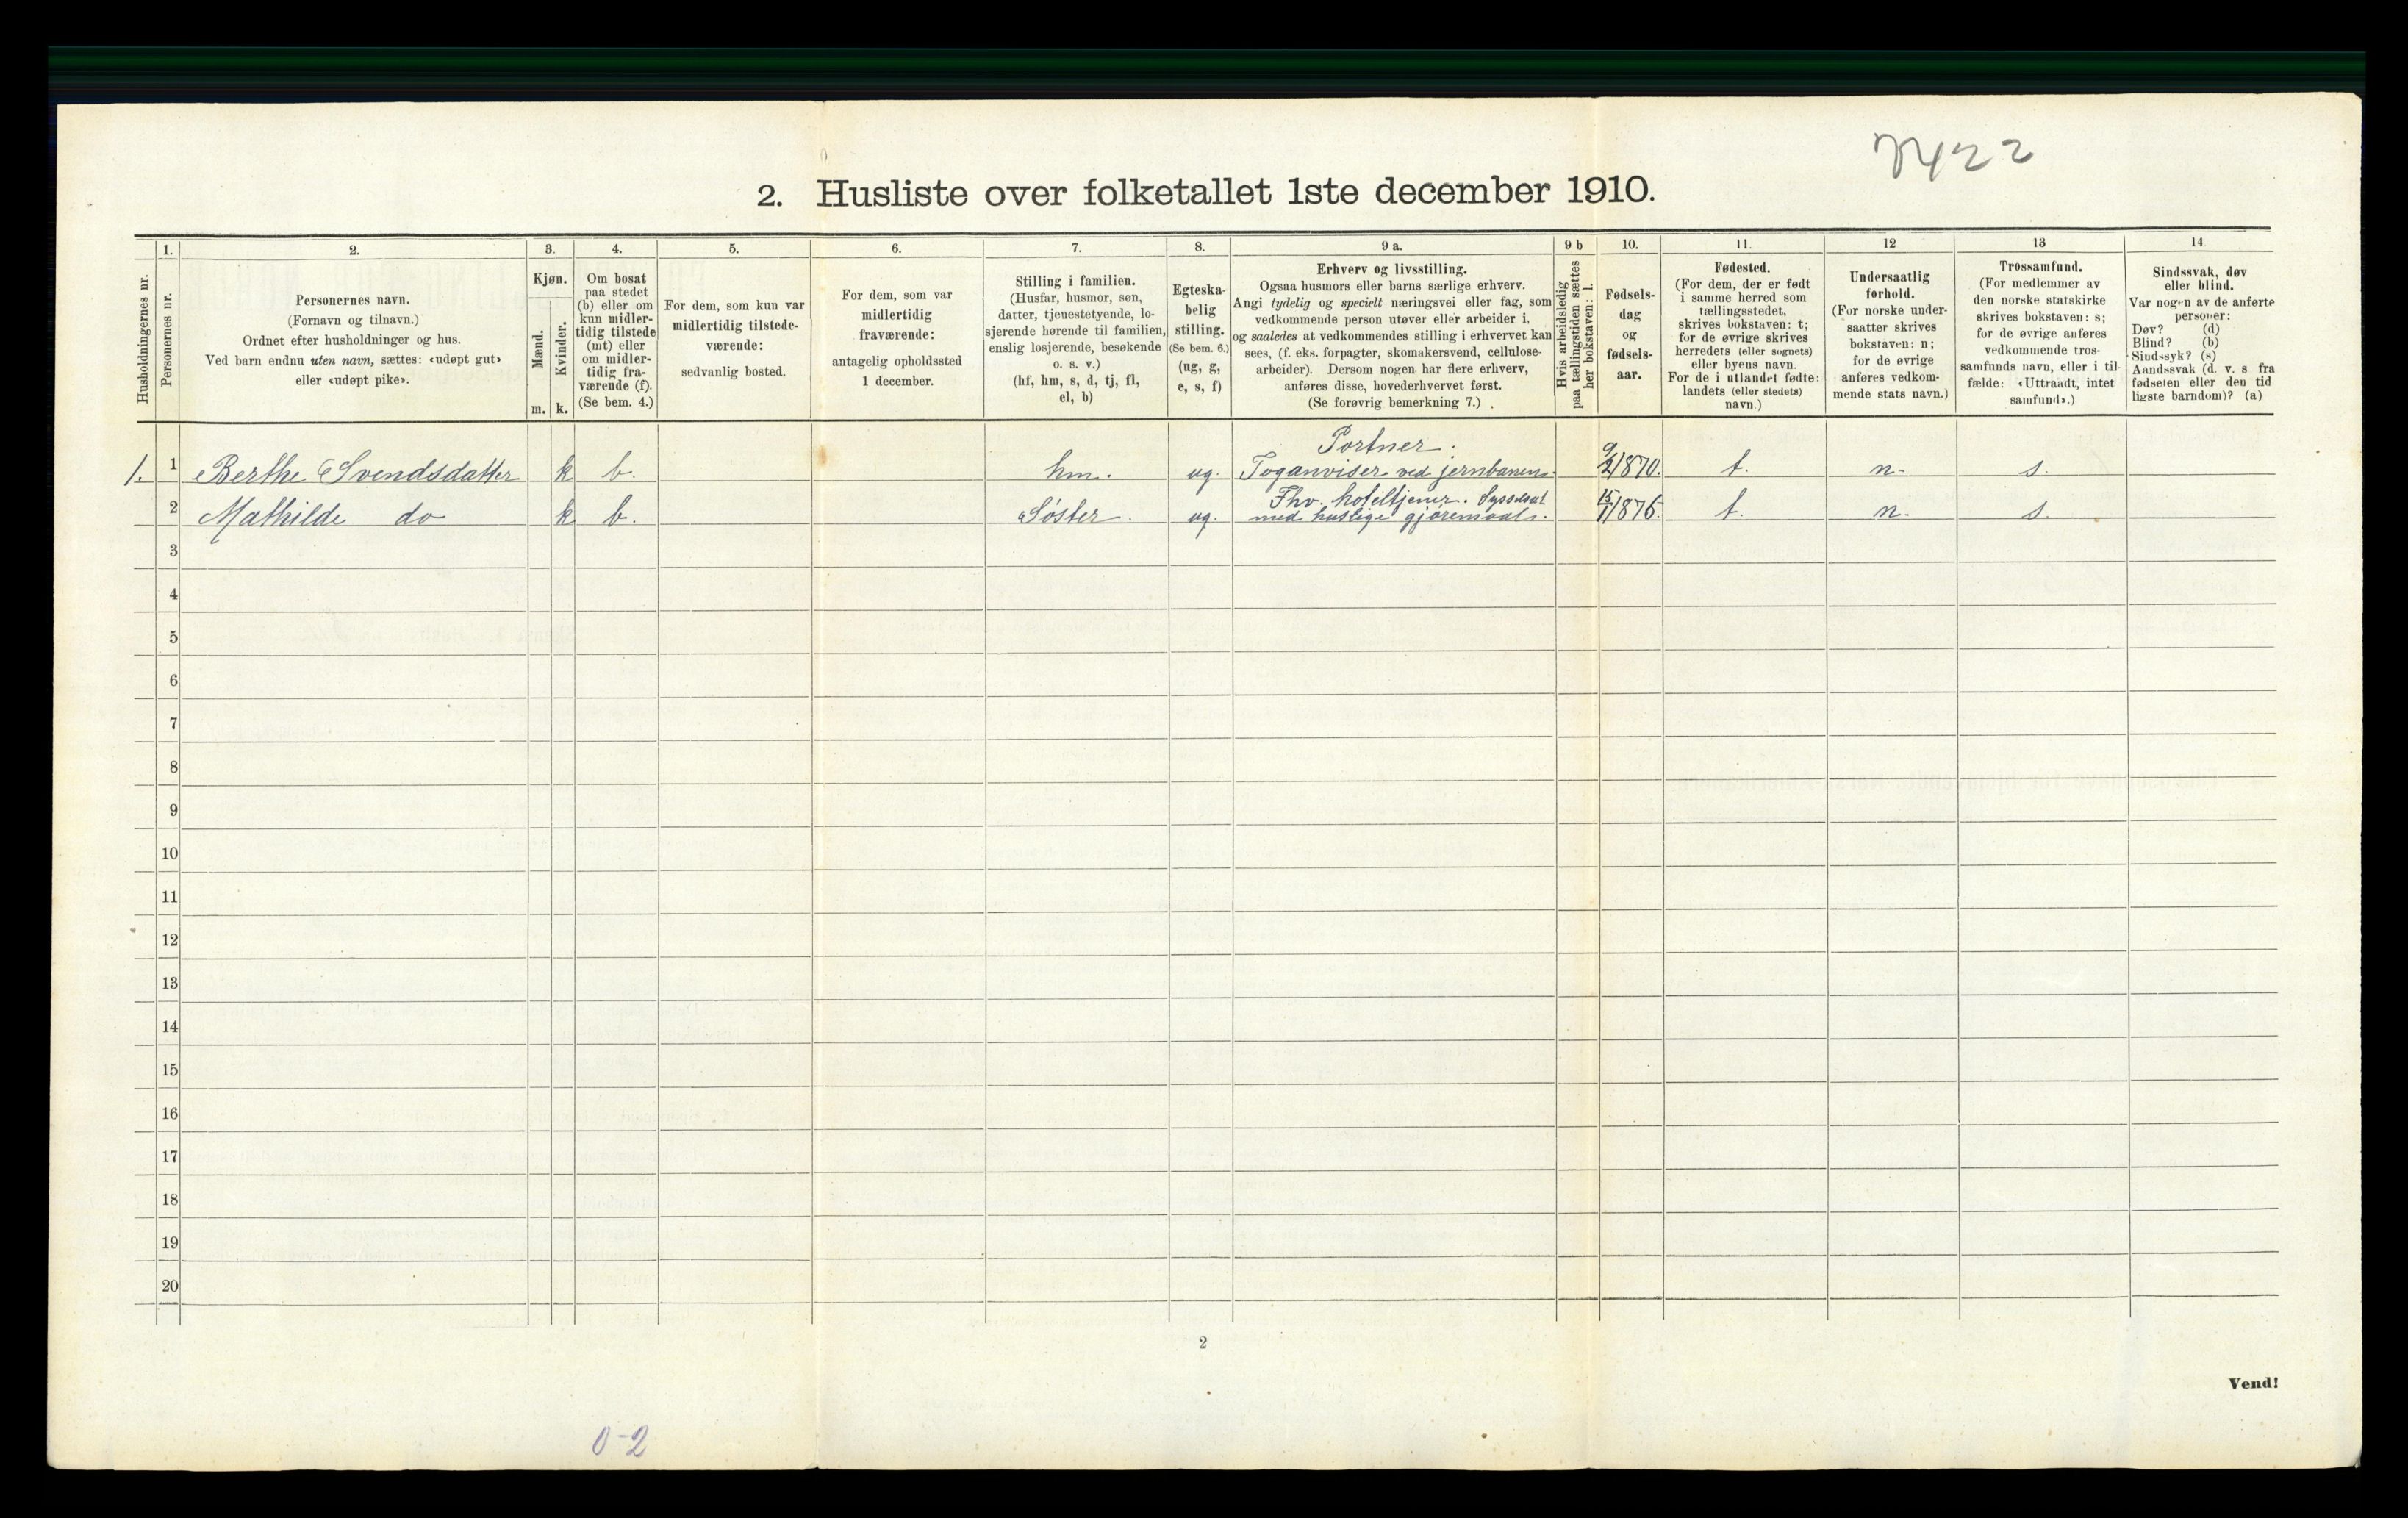 7422
2. Husliste over folketallet 1ste december 1910.
Husholdningernes nr.
1.
Personernes nr.
2.
Personernes navn.
(Fornavn og tilnavn.)
Ordnet efter husholdninger og hus.
Ved barn endnu uten navn, sættes: «udøpt gut»
eller «udøpt pike».
3.
Kjøn.
Mænd.
Kvinder.
m. k.
4.
Om bosat
paa stedet
(b) eller om
kun midler-
tidig tilstede
(mt) eller
om midler-
tidig fra-
værende (f).
(Se bem. 4.)
5.
For dem, som kun var
midlertidig tilstede-
værende:
sedvanlig bosted.
6.
For dem, som var
midlertidig
fraværende:
antagelig opholdssted
1 december.
7.
Stilling i familien.
(Husfar, husmor, søn,
datter, tjenestetyende, lo-
sjerende hørende til familien,
enslig losjerende, besøkende
o. s. v.)
(hf, hm, s, d, tj, fl,
el, b)
8.
Egteska-
belig
stilling.
(Se bem. 6.)
(ug, g,
e, s, f)
9 a.
Erhverv og livsstilling.
Ogsaa husmors eller barns særlige erhverv.
Angi tydelig og specielt næringsvei eller fag, som
vedkommende person utøver eller arbeider i,
og saaledes at vedkommendes stilling i erhvervet kan
sees, (f. eks. forpagter, skomakersvend, cellulose-
arbeider). Dersom nogen har flere erhverv,
anføres disse, hovederhvervet først.
(Se forøvrig bemerkning 7.)
9 b
Hvis arbeidsledig
paa tællingstiden sættes
her bokstaven: l.
10.
Fødsels-
dag
og
fødsels-
aar.
11.
Fødested.
(For dem, der er født
i samme herred som
tællingsstedet,
skrives bokstaven: t;
for de øvrige skrives
herredets (eller sognets)
eller byens navn.
For de i utlandet fødte:
landets (eller stedets)
navn.)
12
Undersaatlig
forhold.
(For norske under-
saatter skrives
bokstaven: n;
for de øvrige
anføres vedkom-
mende stats navn.)
13
Trossamfund.
(For medlemmer av
den norske statskirke
skrives bokstaven: s;
for de øvrige anføres
vedkommende tros-
samfunds navn, eller i til-
fælde: «Uttraadt, intet
samfund».)
14
Sindssvak, døv
eller blind.
Var nogen av de anførte
personer:
Døv? (d)
Blind? (b)
Sindssyk? (s)
Aandssvak (d. v. s. fra
fødselen eller den tid
ligste barndom)? (a)
Portner.
1. 1 Berthe Svendsdatter k b. hm. ug. Toganviser ved jernbanen. 9/2 1870. t. n. s.
Fhv. hoteltjener. Sysselsat
2 Mathilde do k b. Søster. ug. med huslige gjøremaal. 15/1 1876. t. n. s.
3
4
5
6
7
8
9
10
11
12
13
14
15
16
17
18
19
20
2
Vend!
0-2